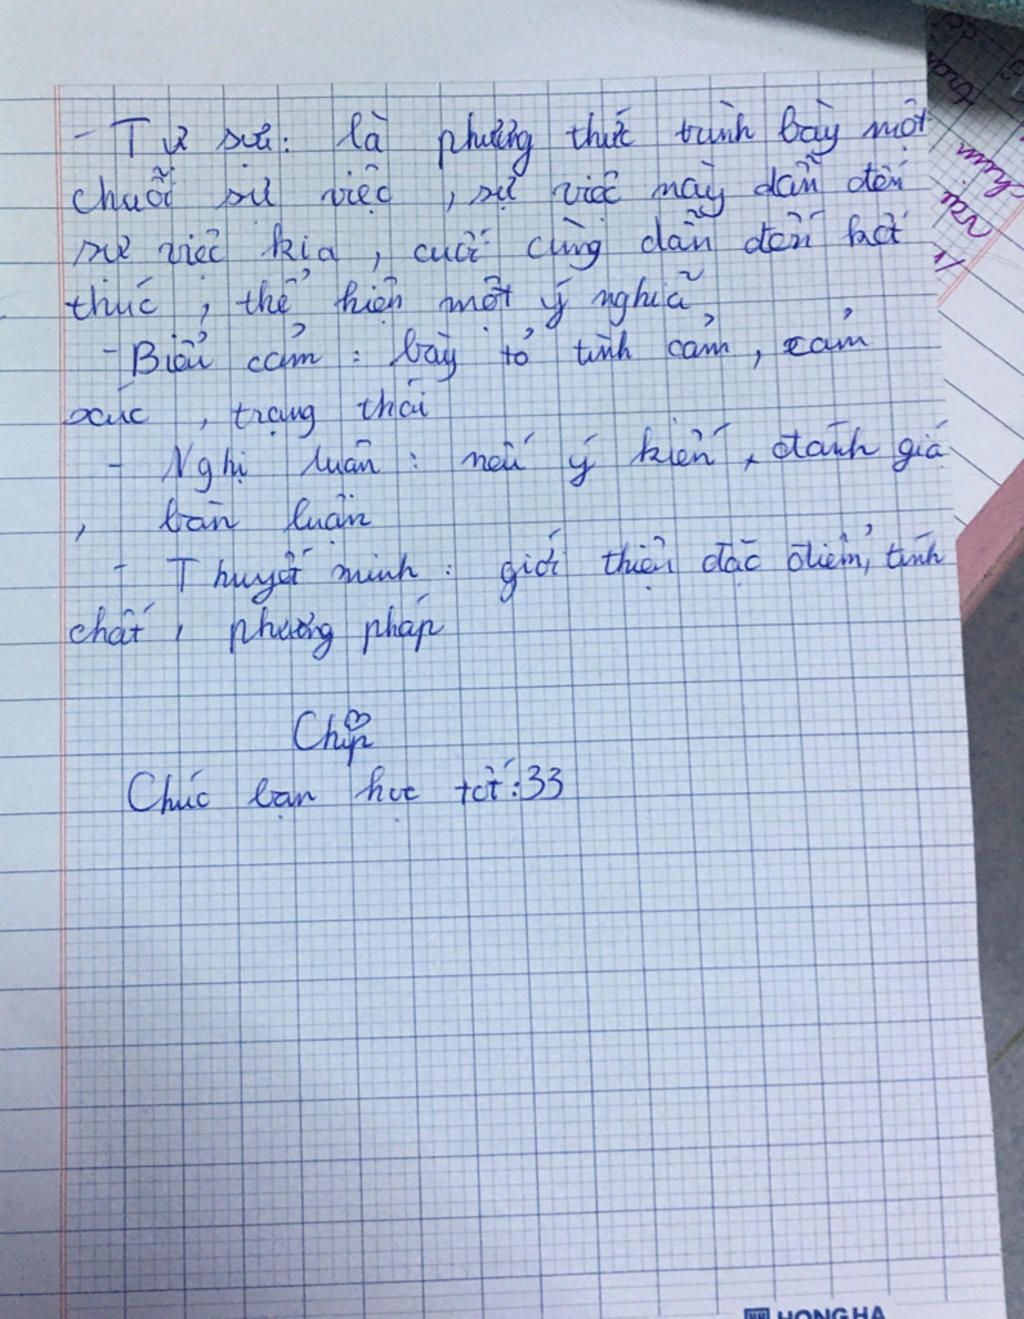 - Tự sự: là phương thức trình bày một
chuỗi sự việc, sự việc này dẫn đến
sự việc kia, cuối cùng dẫn đến kết
thúc, thể hiện một ý nghĩa
- Biểu cảm: bày tỏ tình cảm, cảm
xúc, trạng thái
- Nghị luận: nêu ý kiến, đánh giá
, bàn luận
- Thuyết minh: giới thiệu đặc điểm, tính
chất, phương pháp
Chip
Chúc bạn học tốt:33
HONG HA